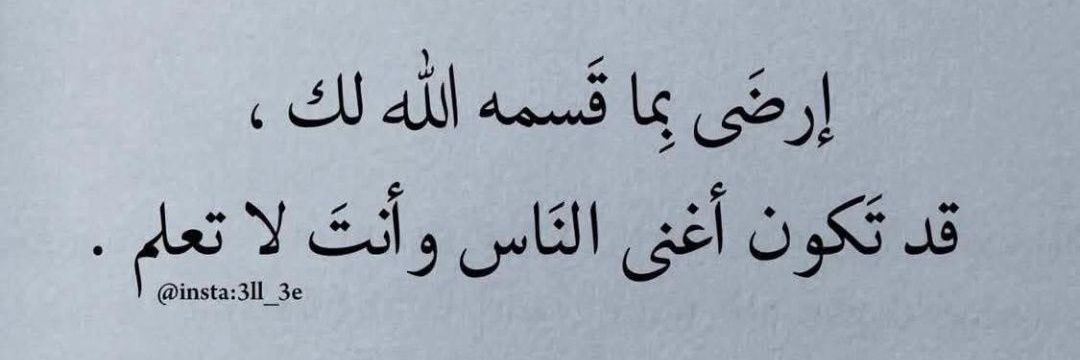 إرضَى بِما قَسمه الله لك ،
قد تَكون أغنى النَاس وأنتَ لا تعلم .
@insta:3ll_3e